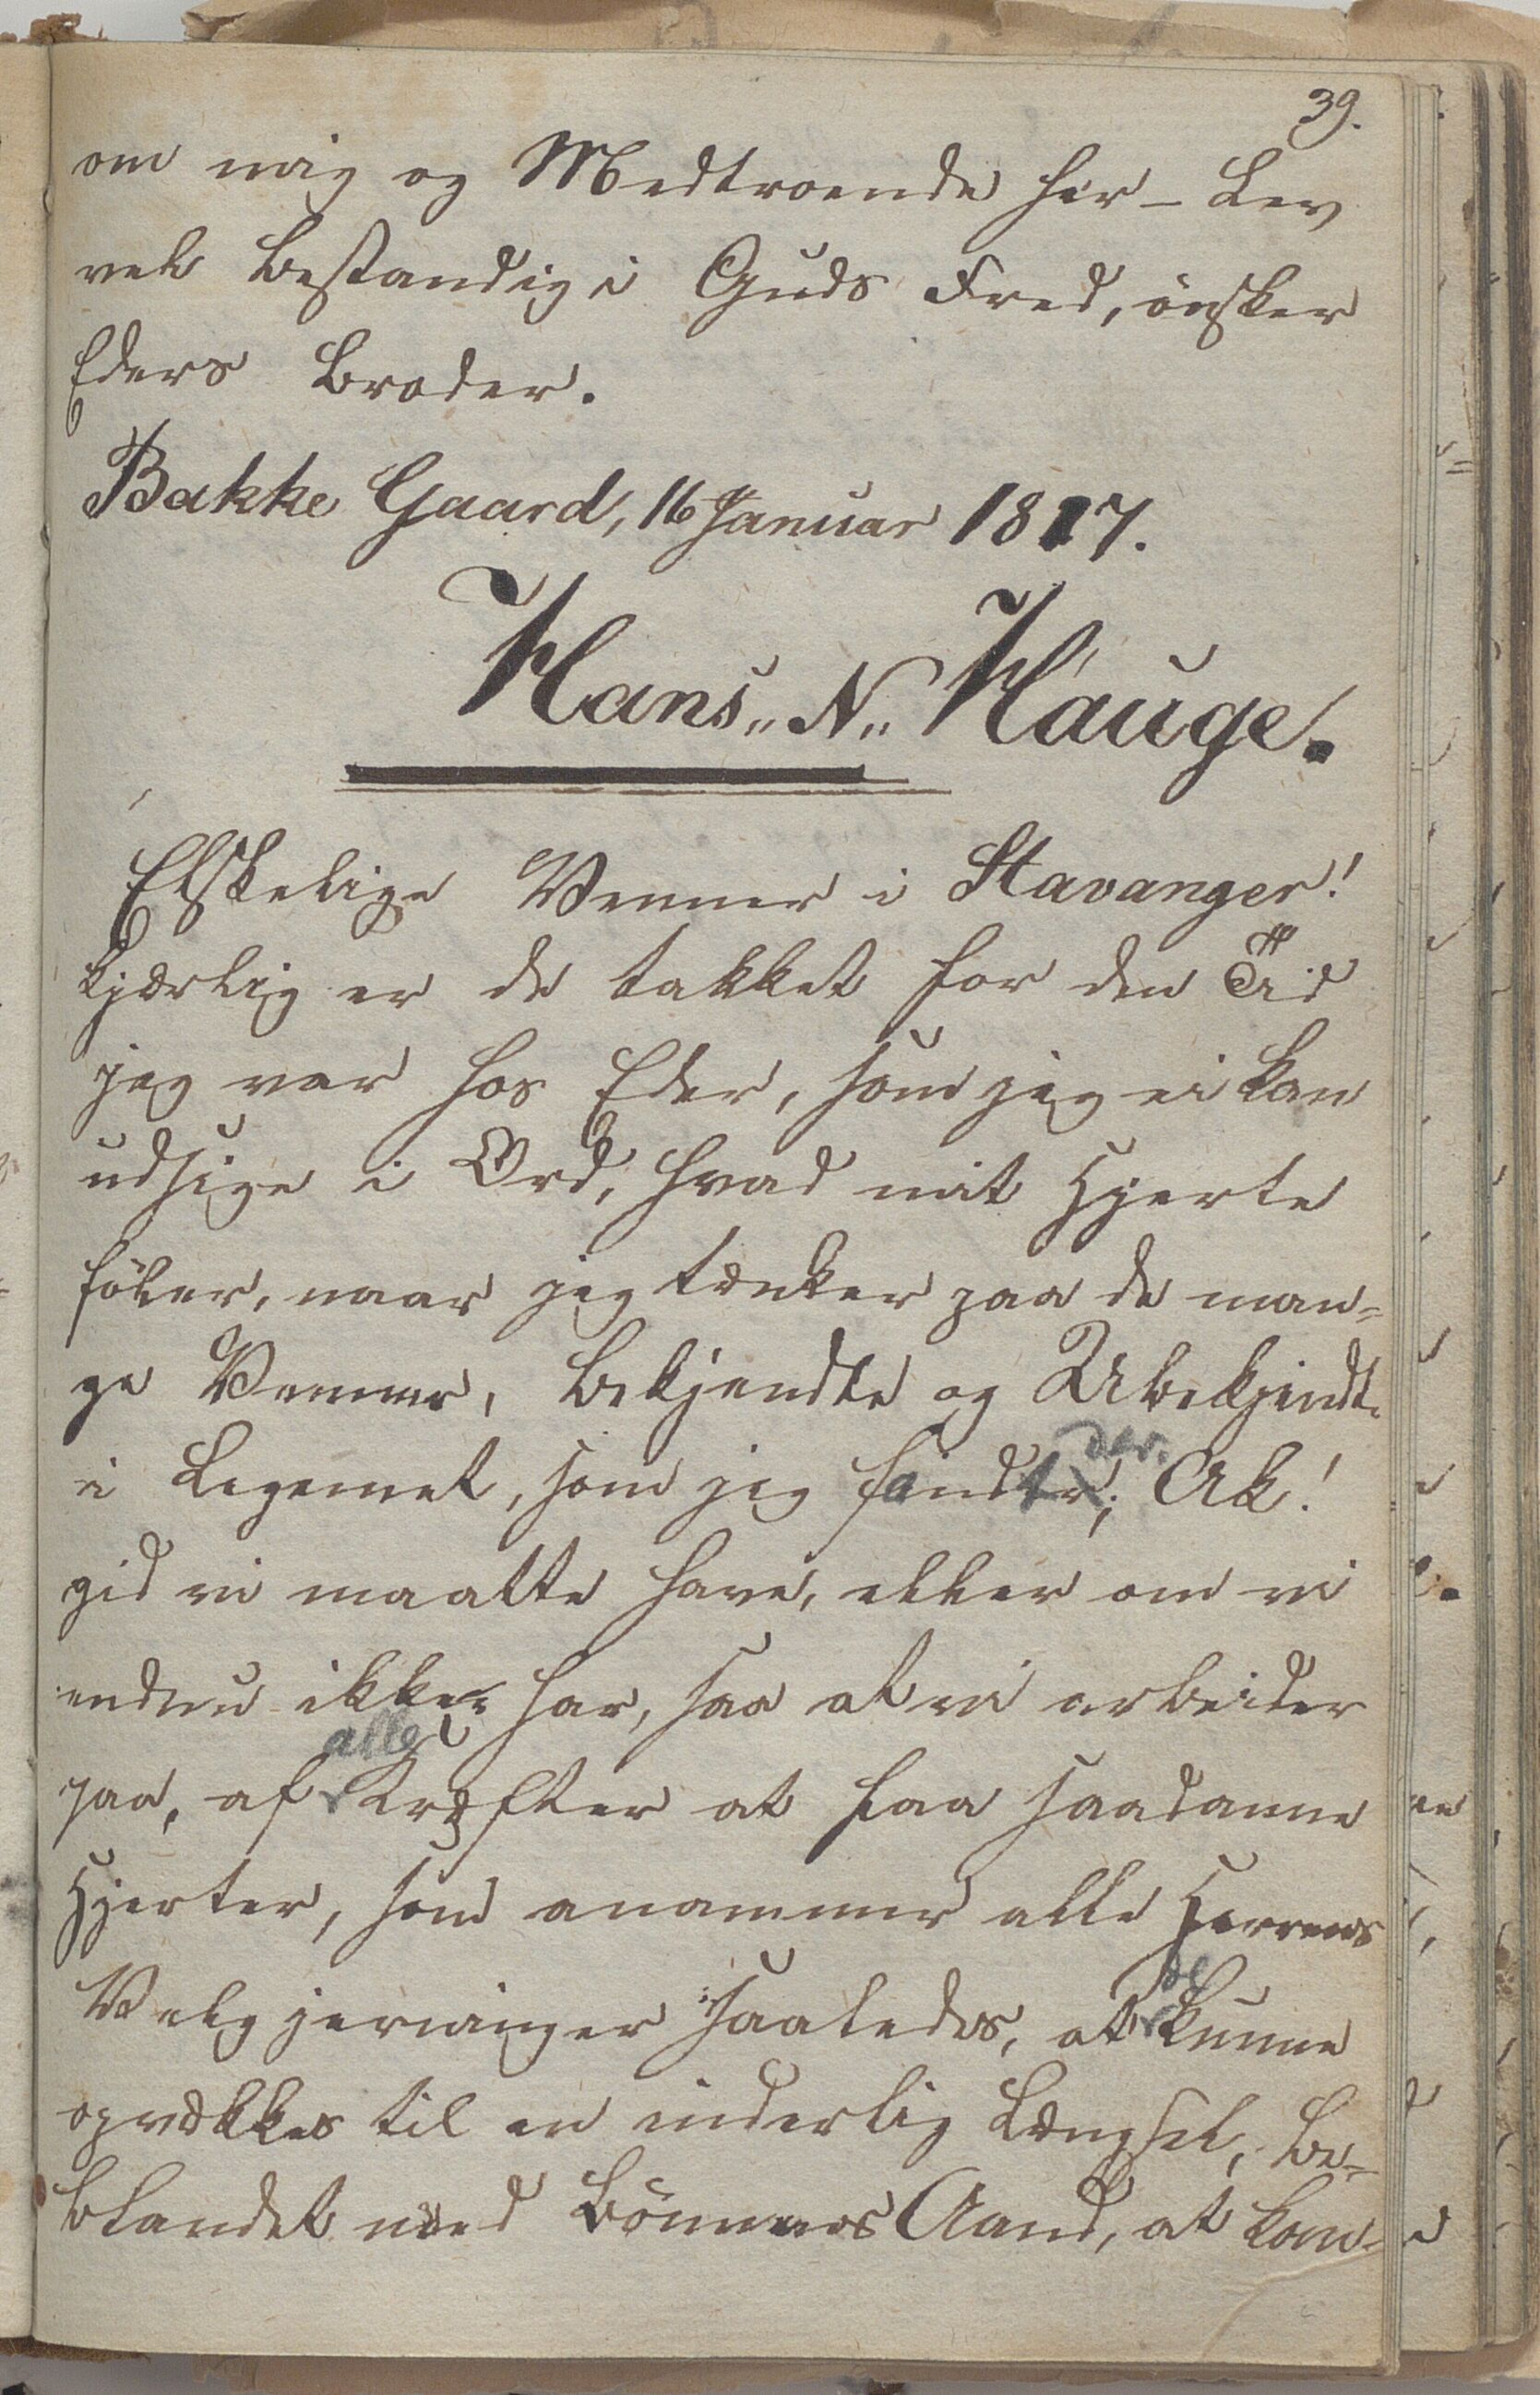 39.
om mig og Medtroende her – Lev
vel bestandig i Guds Fred, önsker
Eders Broder.
Bakke Gaard, 16 Januar 1817.
Hans„ N„ Hauge.
Elskelige Venner i Stavanger!
kjærlig er de takket for den Tid
jeg var hos Eder, som jeg ei kan
udsige i Ord, hvad mit Hjerte
föler, naar jeg tænker paa de man=
ge Venner, bekjendte og Ubekjendte
der.
i Legemet, som jeg fandt; Ak!
gid vi maatte have, eller om vi
endnu ikke har, saa at vi arbeider
alle
paa, af Kræfter at faa saadanne
Hjerter, som anammer alle Herrens
de
Velgjerninger saaledes, at kunne
opvækkes til en inderlig Længsel, be=
blandet med Bönnens Aand, at kom=